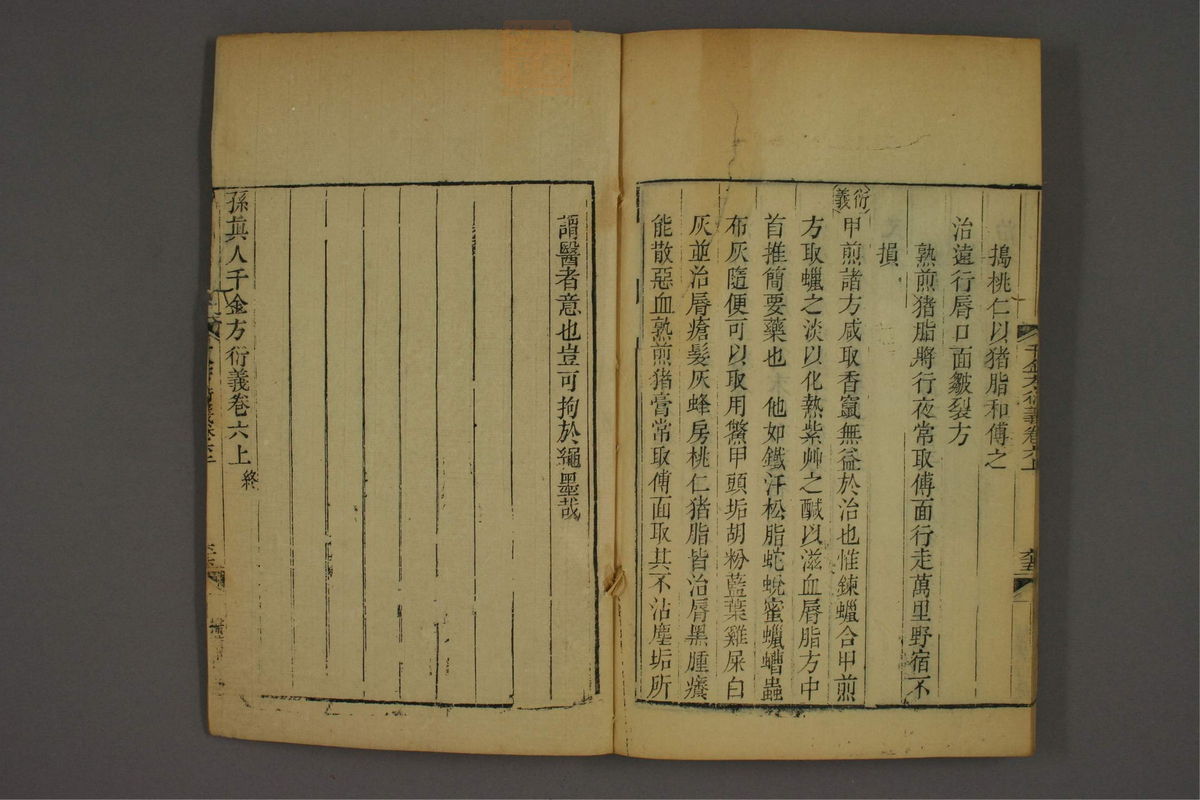 搗桃仁以猪脂和傅之
治遠行脣口面皴裂方
熟煎猪脂將行夜常取傅面行走萬里野宿不
損
衍義
甲煎諸方咸取香竄無益於治也惟鍊蠟合甲煎
方取蠟之淡以化熱紫艸之醎以滋血脣脂方中
首推簡要藥也 他如鐵汗松脂蛇蛻蜜蠟蠐蟲
布灰隨便可以取用鱉甲頭垢胡粉藍葉雞屎白
灰並治脣瘡髮灰蜂房桃仁猪脂皆治脣黑腫癢
能散惡血熟煎猪膏常取傅面取其不沾塵垢所
謂醫者意也豈可拘於繩墨哉
孫真人千金方衍義卷六上 終
千金方衍義卷六上